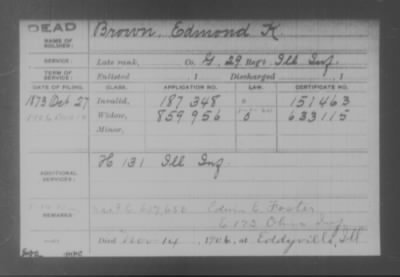 DEAD
NAME OF SOLDIER: Brown, Edmond K.
SERVICE: Late rank, Co. G, 29 Reg't Ill Inf.
TERM OF SERVICE: Enlisted , 1 Discharged , 1
DATE OF FILING. CLASS. APPLICATION NO. LAW. CERTIFICATE NO.
1873 Oct 27 Invalid, 187348 151463
Widow, 859956 633115
Minor,
ADDITIONAL SERVICES: H 131 Ill Inf.
REMARKS:
Died Nov 14, 1906, at Eddyville, Ill